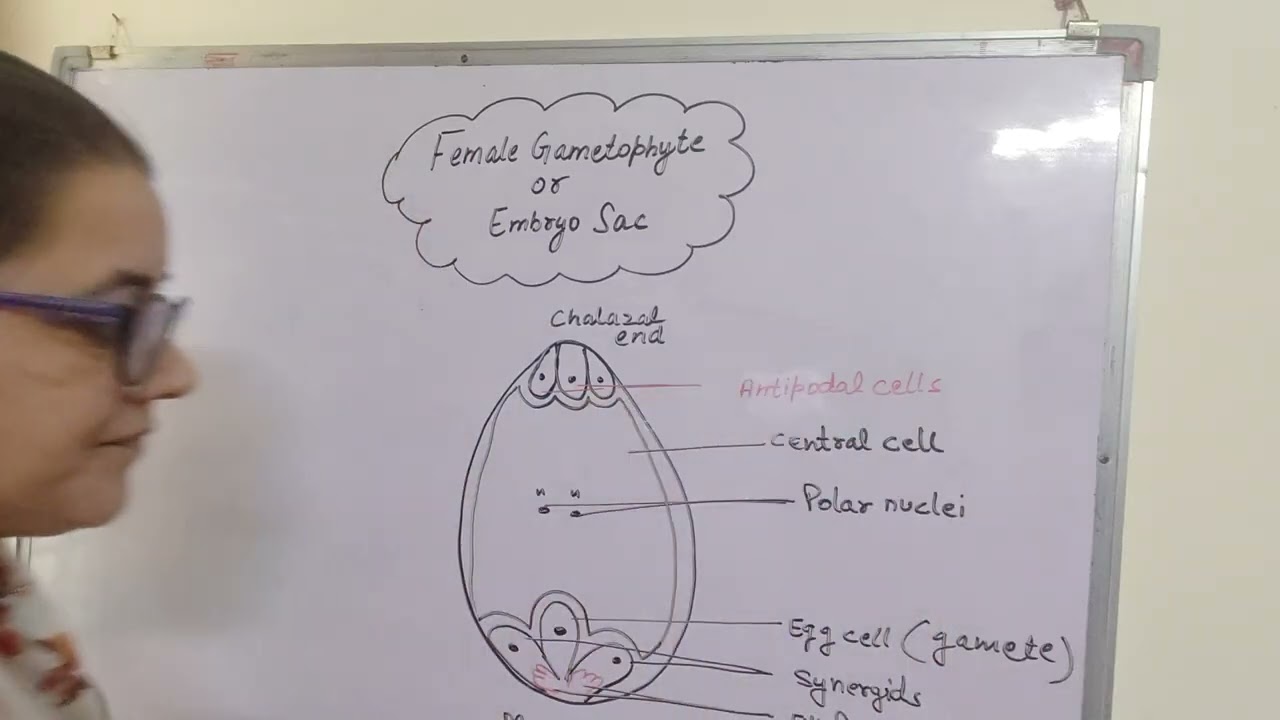 Female Gametophyte
or
Embryo Sac
Chalazal
end
Antipodal cells
Central cell
n n
Polar nuclei
Egg cell (gamete)
Synergids